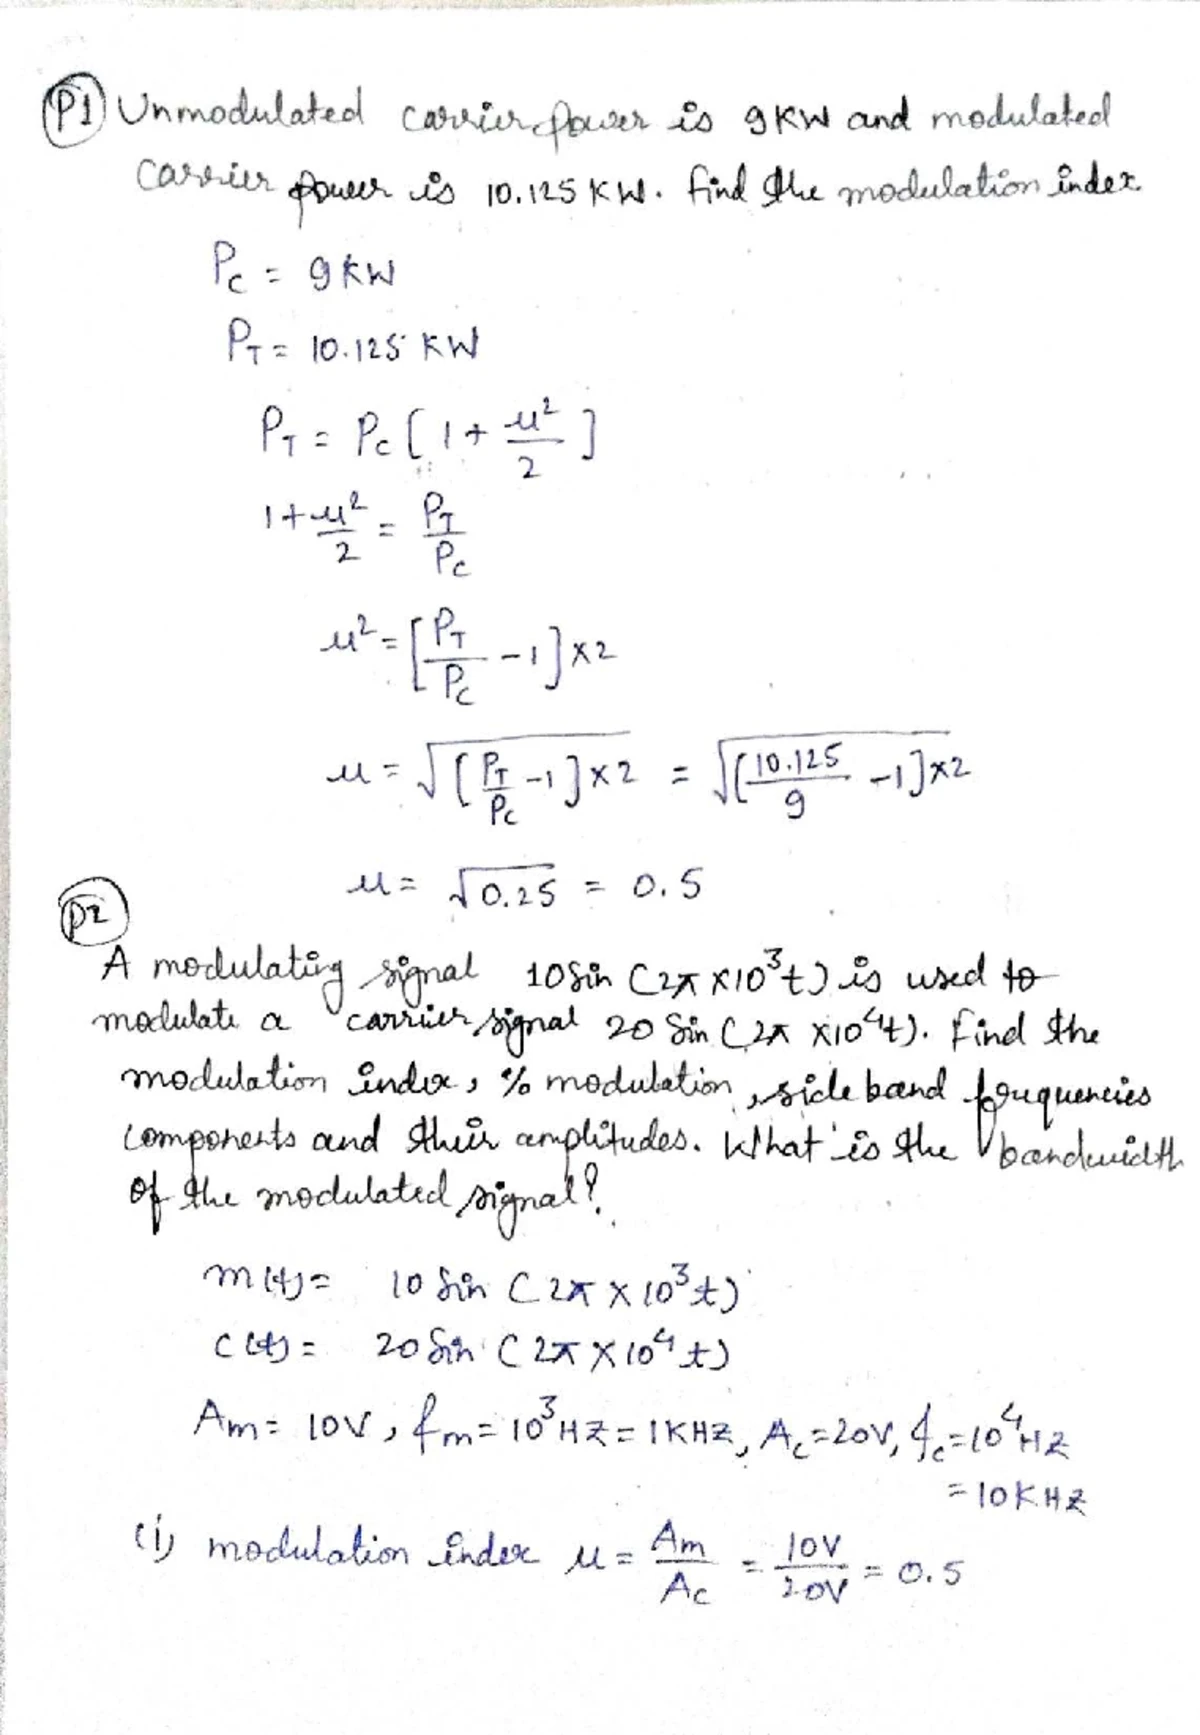 P1 Unmodulated carrier power is 9KW and modulated
carrier power is 10.125 KW. find the modulation index
Pc = 9KW
PT = 10.125 KW
PT = Pc [ 1 + μ²/2 ]
1 + μ²/2 = PT/Pc
μ² = [ PT/Pc - 1 ] × 2
μ = √[ PT/Pc - 1 ] × 2 = √[ 10.125/9 - 1 ] × 2
μ = √0.25 = 0.5
P2
A modulating signal 10 Sin (2π × 10³t) is used to
modulate a carrier signal 20 Sin (2π × 10⁴t). Find the
modulation index, % modulation, side band frequencies
components and their amplitudes. What is the bandwidth
of the modulated signal?
m(t) = 10 Sin (2π × 10³t)
c(t) = 20 Sin (2π × 10⁴t)
Am = 10V, fm = 10³HZ = 1KHZ, Ac = 20V, fc = 10⁴HZ
= 10KHZ
(i) modulation index μ = Am/Ac = 10V/20V = 0.5